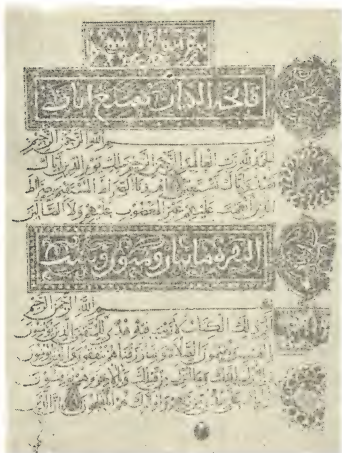 فاتحة القرآن سبع آيات
بسم الله الرحمن الرحيم
الحمد لله رب العالمين الرحمن الرحيم ملك يوم الدين اياك
نعبد واياك نستعين اهدنا الصراط المستقيم صراط
الذين انعمت عليهم غير المغضوب عليهم ولا الضالين
البقرة مايتان وست
بسم الله الرحمن الرحيم
الم ذلك الكتاب لا ريب فيه هدى للمتقين الذين يؤمنون
بالغيب ويقيمون الصلاة ومما رزقناهم ينفقون والذين يؤمنون
بما انزل اليك وما انزل من قبلك وبالاخرة هم يوقنون
اولئك على هدى من ربهم واولئك هم المفلحون ان الذين